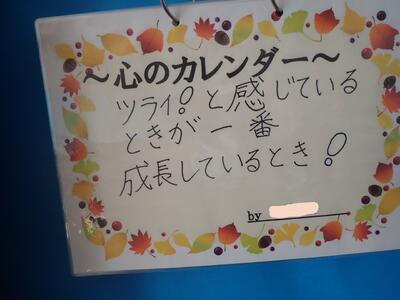 ～心のカレンダー～
ツライ!と感じている
ときが一番
成長しているとき!
by